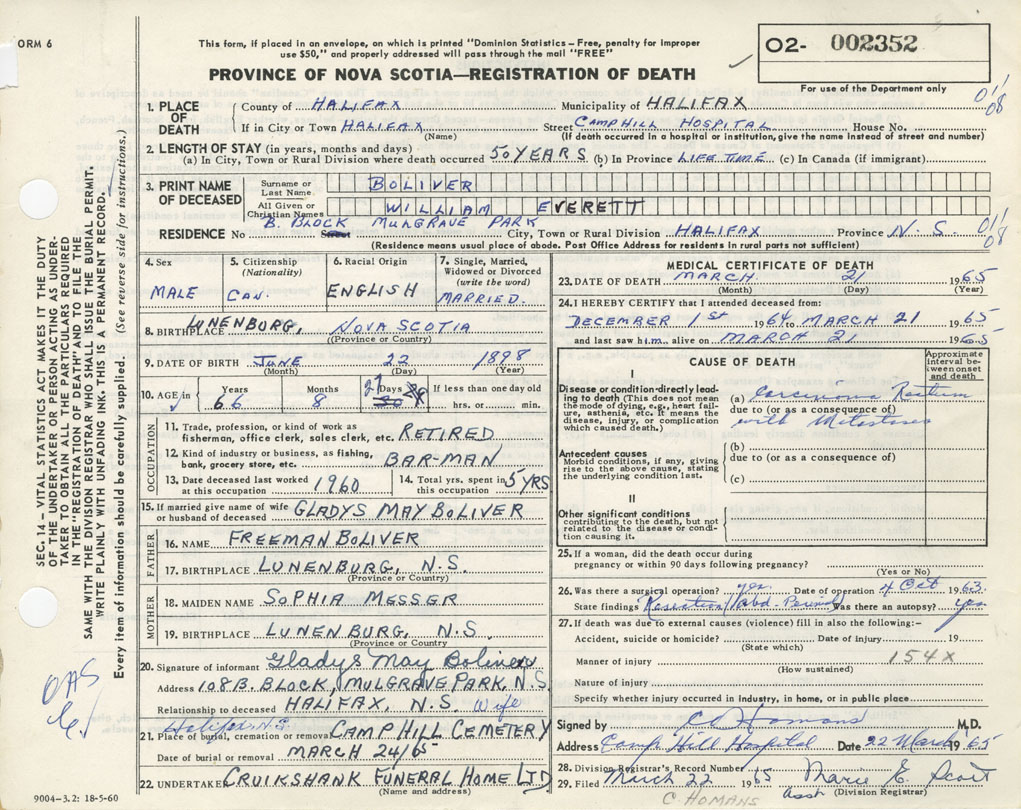 ORM 6
This form, if placed in an envelope, on which is printed "Dominion Statistics – Free, penalty for improper
use $50," and properly addressed will pass through the mail "FREE"
PROVINCE OF NOVA SCOTIA—REGISTRATION OF DEATH
O2- 002352
For use of the Department only
1. PLACE OF DEATH County of HALIFAX Municipality of HALIFAX
If in City or Town HALIFAX (Name) Street CAMPHILL HOSPITAL House No.
(If death occurred in a hospital or institution, give the name instead of street and number)
01/08
2. LENGTH OF STAY (in years, months and days)
(a) In City, Town or Rural Division where death occurred 50 YEARS (b) In Province LIFE TIME (c) In Canada (if immigrant)
3. PRINT NAME OF DECEASED Surname or Last Name BOLIVER
All Given or Christian Names WILLIAM EVERETT
RESIDENCE No B. BLOCK MULGRAVE PARK Street City, Town or Rural Division HALIFAX Province N. S
01/08
(Residence means usual place of abode. Post Office Address for residents in rural parts not sufficient)
4. Sex MALE
5. Citizenship (Nationality) CAN.
6. Racial Origin ENGLISH
7. Single, Married, Widowed or Divorced (write the word) MARRIED.
8. BIRTHPLACE LUNENBURG, NOVA SCOTIA
(Province or Country)
9. DATE OF BIRTH JUNE 22 1898
(Month) (Day) (Year)
10. AGE in Years 66 Months 8 Days 29 If less than one day old hrs. or min.
OCCUPATION
11. Trade, profession, or kind of work as fisherman, office clerk, sales clerk, etc. RETIRED
12. Kind of industry or business, as fishing, bank, grocery store, etc. BAR-MAN
13. Date deceased last worked at this occupation 1960
14. Total yrs. spent in this occupation 5 YRS
15. If married give name of wife or husband of deceased GLADYS MAY BOLIVER
FATHER
16. NAME FREEMAN BOLIVER
17. BIRTHPLACE LUNENBURG, N.S.
(Province or Country)
MOTHER
18. MAIDEN NAME SOPHIA MESSER
19. BIRTHPLACE LUNENBURG, N.S
(Province or Country)
20. Signature of informant Gladys May Boliver
Address 108 B. BLOCK, MULGRAVE PARK, N.S
Relationship to deceased HALIFAX, N.S. Wife
Halifax N.S.
21. Place of burial, cremation or removal CAMP HILL CEMETERY
Date of burial or removal MARCH 24/65
22. UNDERTAKER CRUIKSHANK FUNERAL HOME LTD
(Name and address)
MEDICAL CERTIFICATE OF DEATH
23. DATE OF DEATH MARCH 21 1965
(Month) (Day) (Year)
24. I HEREBY CERTIFY that I attended deceased from:
DECEMBER 1st 1964 to MARCH 21 1965
and last saw him alive on MARCH 21 1965
CAUSE OF DEATH
Approximate interval between onset and death
I
Disease or condition directly leading to death (This does not mean the mode of dying, e.g., heart failure, asthenia, etc. It means the disease, injury, or complication which caused death.)
(a) Carcinoma Rectum
due to (or as a consequence of)
with Metastases
Antecedent causes
Morbid conditions, if any, giving rise to the above cause, stating the underlying condition last.
(b)
due to (or as a consequence of)
(c)
II
Other significant conditions contributing to the death, but not related to the disease or condition causing it.
25. If a woman, did the death occur during pregnancy or within 90 days following pregnancy?
(Yes or No)
26. Was there a surgical operation? yes Date of operation 4 Oct 1963.
State findings Resection Abd-Perineal Was there an autopsy? yes
27. If death was due to external causes (violence) fill in also the following:–
Accident, suicide or homicide? Date of injury 19
(State which)
Manner of injury 154X
(How sustained)
Nature of injury
Specify whether injury occurred in Industry, in home, or in public place
Signed by C Homans M.D.
Address Camp Hill Hospital Date 22 March 1965
28. Division Registrar's Record Number
29. Filed March 22 1965 Marie E. Scott
C. HOMANS Asst (Division Registrar)
SEC. 14 – VITAL STATISTICS ACT MAKES IT THE DUTY
OF THE UNDERTAKER OR PERSON ACTING AS UNDER-
TAKER TO OBTAIN ALL THE PARTICULARS REQUIRED
IN THE "REGISTRATION OF DEATH" AND TO FILE THE
SAME WITH THE DIVISION REGISTRAR WHO SHALL ISSUE THE BURIAL PERMIT.
WRITE PLAINLY WITH UNFADING INK. THIS IS A PERMANENT RECORD.
Every item of information should be carefully supplied. (See reverse side for instructions.)
OAS
9004-3.2: 18-5-60